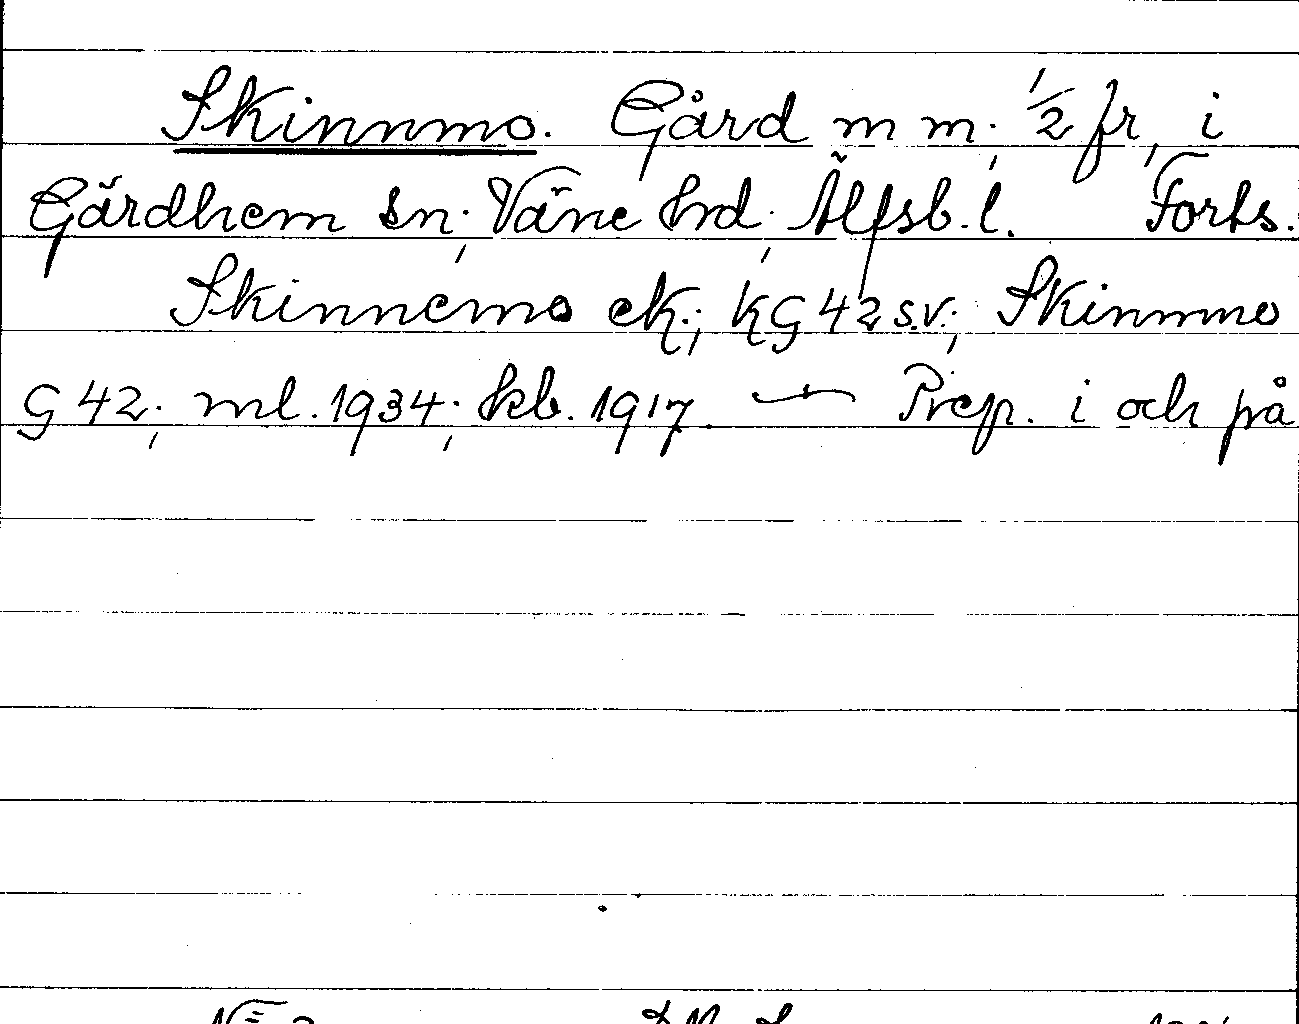 Skinnmo. Gård m m., 1/2 fr, i
Gärdhem sn., Väne hd., Älfsb. l. Forts.
Skinnemo ek.; KG 42 s.v.; Skinnmo
G 42.; ml. 1934.; kb. 1917. — Prep. i och på